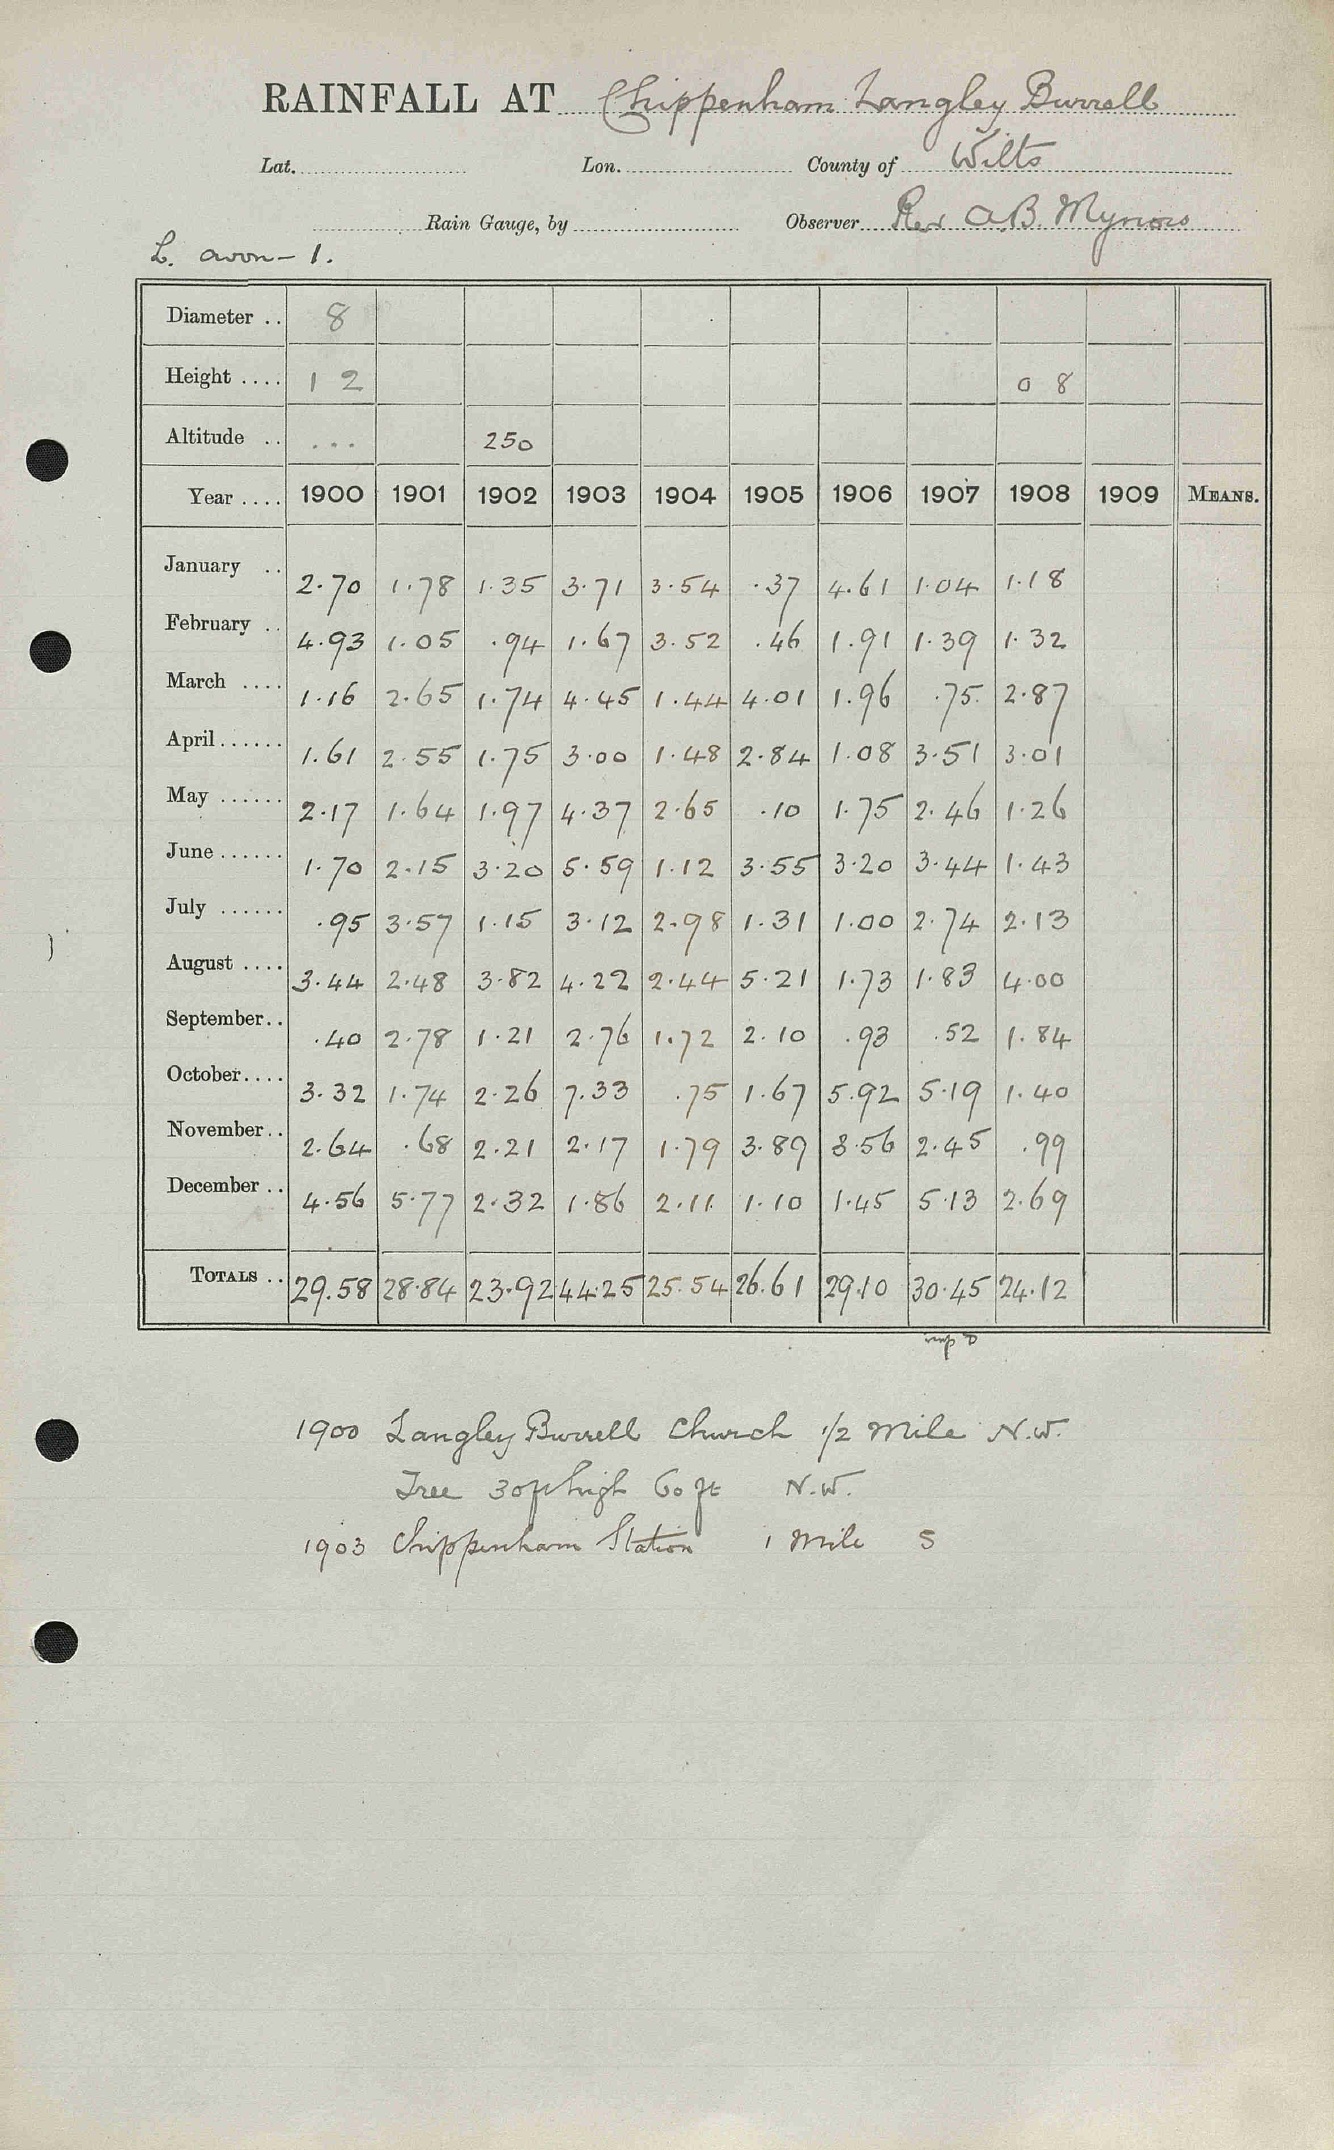 RAINFALL AT Chippenham Langley Burrell
Lat. Lon. County of Wilts
Rain Gauge, by Observer Rev A.B. Mynors
L. Avon - 1.
Diameter .. 8
Height .... 1 2 0 8
Altitude .. ... 250
Year .... 1900 1901 1902 1903 1904 1905 1906 1907 1908 1909 MEANS.
January .. 2.70 1.78 1.35 3.71 3.54 .37 4.61 1.04 1.18
February .. 4.93 1.05 .94 1.67 3.52 .46 1.91 1.39 1.32
March .... 1.16 2.65 1.74 4.45 1.44 4.01 1.96 .75 2.87
April ...... 1.61 2.55 1.75 3.00 1.48 2.84 1.08 3.51 3.01
May ...... 2.17 1.64 1.97 4.37 2.65 .10 1.75 2.46 1.26
June ...... 1.70 2.15 3.20 5.59 1.12 3.55 3.20 3.44 1.43
July ...... .95 3.57 1.15 3.12 2.98 1.31 1.00 2.74 2.13
August .... 3.44 2.48 3.82 4.22 2.44 5.21 1.73 1.83 4.00
September .. .40 2.78 1.21 2.76 1.72 2.10 .93 .52 1.84
October .... 3.32 1.74 2.26 7.33 .75 1.67 5.92 5.19 1.40
November .. 2.64 .68 2.21 2.17 1.79 3.89 3.56 2.45 .99
December .. 4.56 5.77 2.32 1.86 2.11 1.10 1.45 5.13 2.69
TOTALS .. 29.58 28.84 23.92 44.25 25.54 26.61 29.10 30.45 24.12
1900 Langley Burrell Church 1/2 Mile N.W.
Tree 30ft high 60 ft N.W.
1903 Chippenham Station 1 Mile S